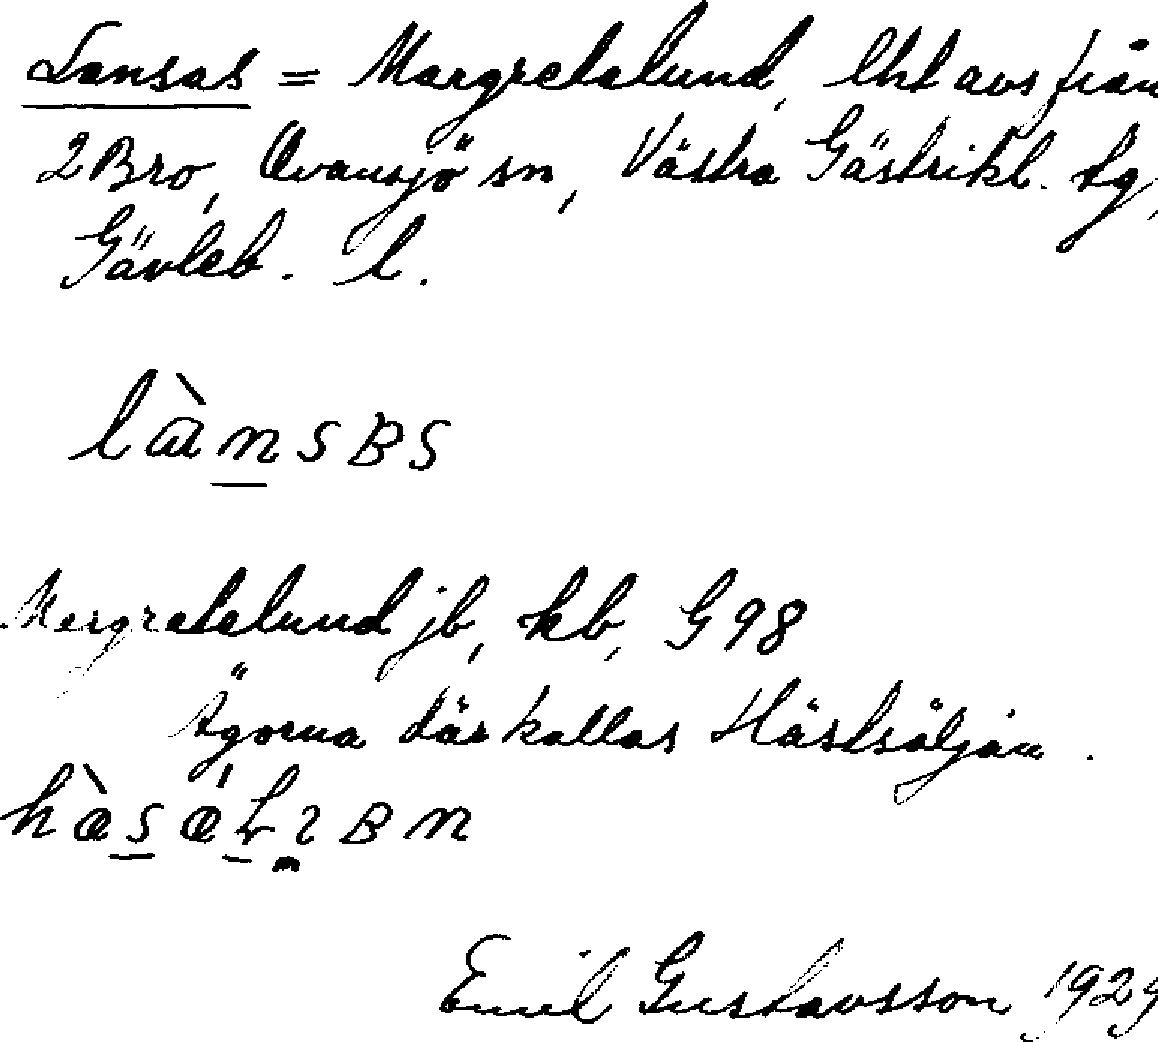 Lansas = Margretelund, lht avs från
2 Bro, Ovansjö sn, Västra Gästrikl. tg,
Gävleb. l.
Margretelund jb, kb, G 98
Ägorna där kallas Hästsäljan.
Emil Gustavsson 1929